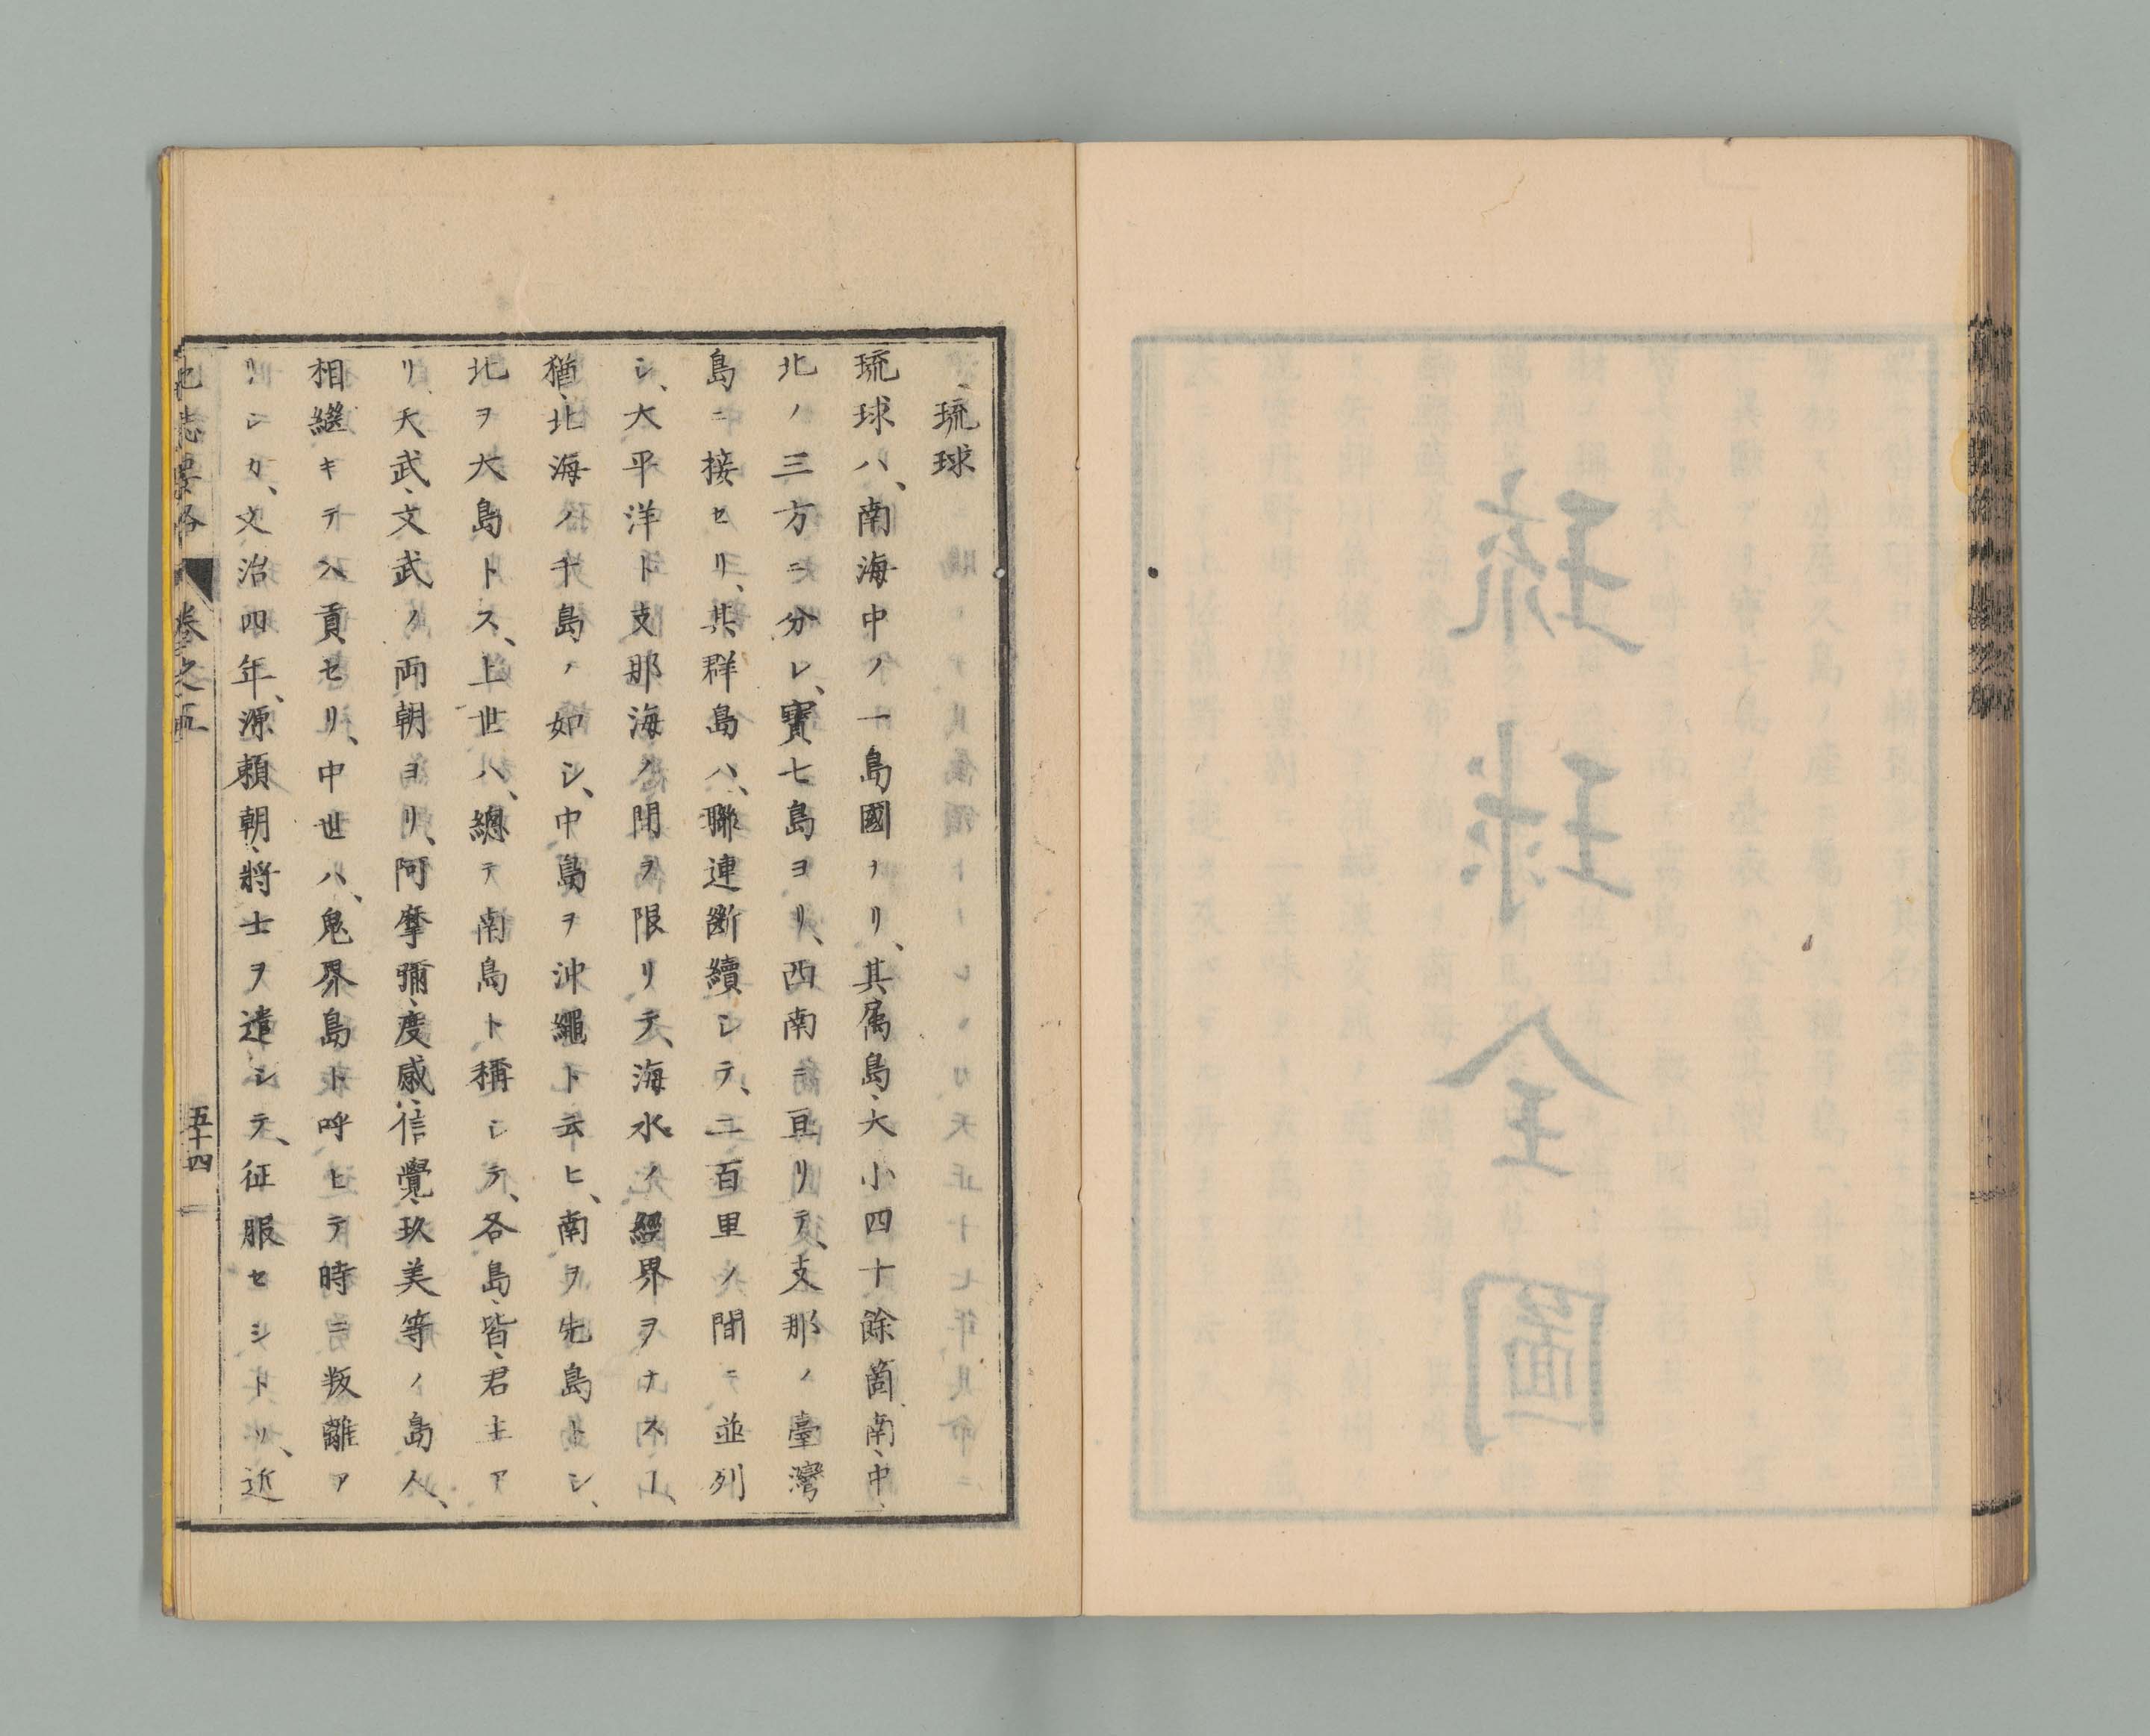 琉球
琉球ハ、南海中ノ一島國ナリ、其属島、大小四十餘箇、南、中、
北ノ三方ニ分レ、寳七島ヨリ、西南ニ亘リテ、支那ノ臺灣
島ニ接セリ、其群島ハ、聯連斷續シテ、二百里ノ間ニ並列
シ、大平洋ト支那海ノ間ヲ限リテ、海水ノ經界ヲナスヿ、
猶、北海ノ千島ノ如シ、中島ヲ沖繩ト云ヒ、南ヲ先島トシ、
北ヲ大島トス、上世ハ、總テ南島ト稱シテ、各島、皆、君主ア
リ、天武、文武ノ両朝ヨリ、阿摩彌、度感、信覺、玖美等ノ島人、
相繼キテ入貢セリ、中世ハ、鬼界島ト呼ヒテ時ニ叛離ア
リシカ、文治四年、源頼朝、將士ヲ遣シテ、征服セシトリ、近
地志要略 卷之五 五十四